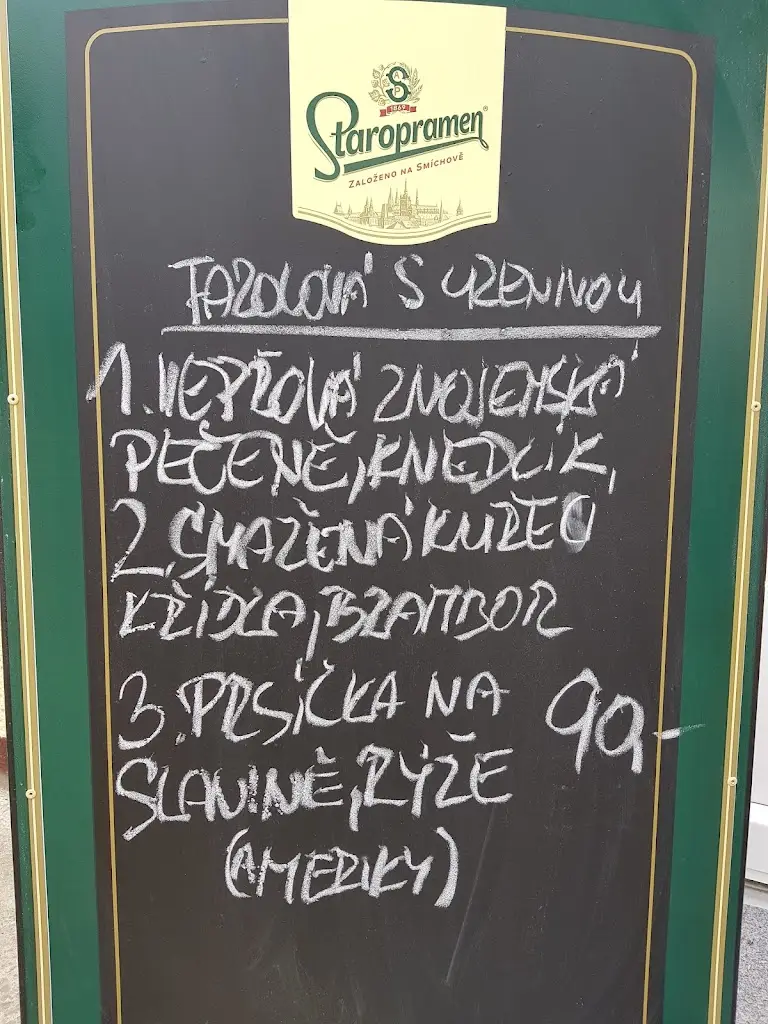 S
1869
Staropramen
ZALOŽENO NA SMÍCHOVĚ
FAZOLOVÁ S UZENINOU
1. VEPŘOVÁ ZNOJEMSKÁ
PEČENĚ, KNEDLÍK,
2. SMAŽENÁ KUŘECÍ
KŘÍDLA, BRAMBOR
3. PRSÍČKA NA 90,-
SLANINĚ, RÝŽE
(AMERIKY)